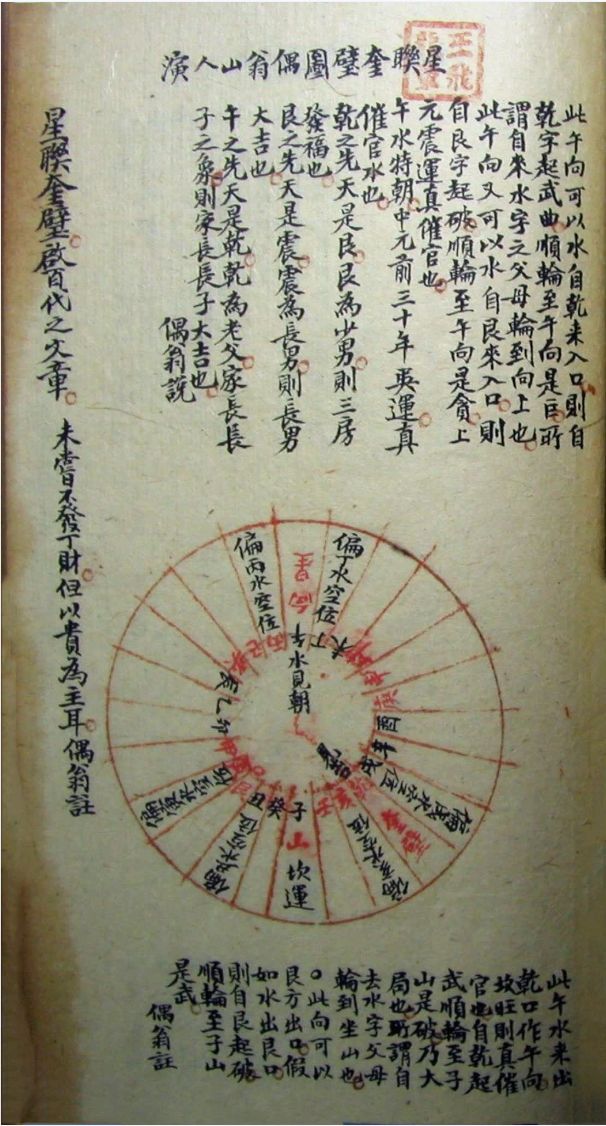 星聯奎壁圖偶翁山人演
此午向可以水自乾来入口則自
乾字起武曲順輪至午向是巨所
謂自来水字之父母輪到向上也
此午向又可以水自艮來入口則
自艮字起破順輪至午向是貪上
元震運真催官也
午水特朝中元前三十年巽運真
催官水也
乾之先天是艮艮為少男則三房
發福也
艮之先天是震震為長男則長男
大吉也
午之先天是乾乾為老父家長長
子之象則家長長子大吉也
偶翁説
星聯奎壁啟百代之文章
未嘗不發丁財但以貴為主耳偶翁註
偏丁水空位
偏丙水空位
向
水見朝
辰乙卯
酉辛戌
丑癸子
壬亥
山
坎運
此午水来出
乾口作午向
坎旺則真催
官也自乾起
武順輪至子
山是破乃大
局也所謂自
去水字父母
輪到坐山也
○此向可以
艮方出口假
如水出艮口
則自艮起破
順輪至子山
是武
偶翁註